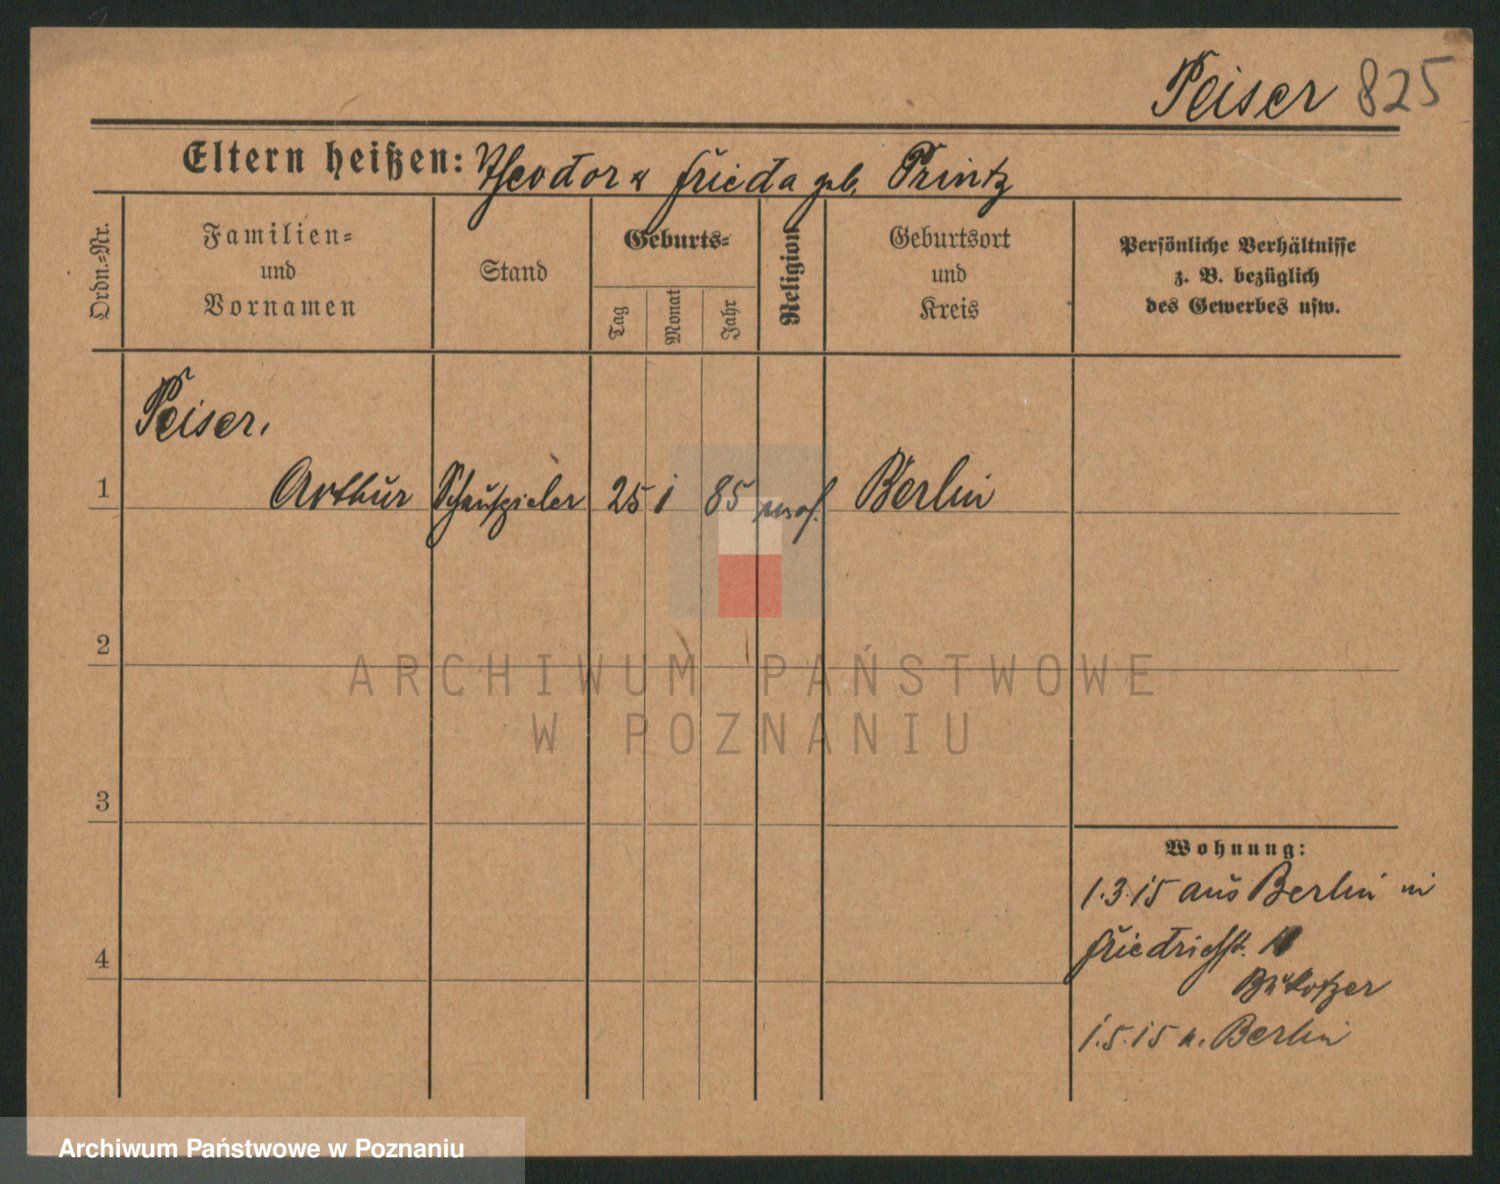 Peiser 825
Eltern heißen: Theodor u Frieda geb. Printz
Ordn.-Nr.
Familien-
und
Vornamen
Stand
Geburts-
Tag
Monat
Jahr
Religion
Geburtsort
und
Kreis
Persönliche Verhältnisse
z. B. bezüglich
des Gewerbes usw.
Peiser,
1 Arthur Schauspieler 25 1 85 mos. Berlin
2
3
4
Wohnung:
1.3.15 aus Berlin in
Friedrichstr.
1.5.15 n. Berlin
ARCHIWUM PAŃSTWOWE
W POZNANIU
Archiwum Państwowe w Poznaniu